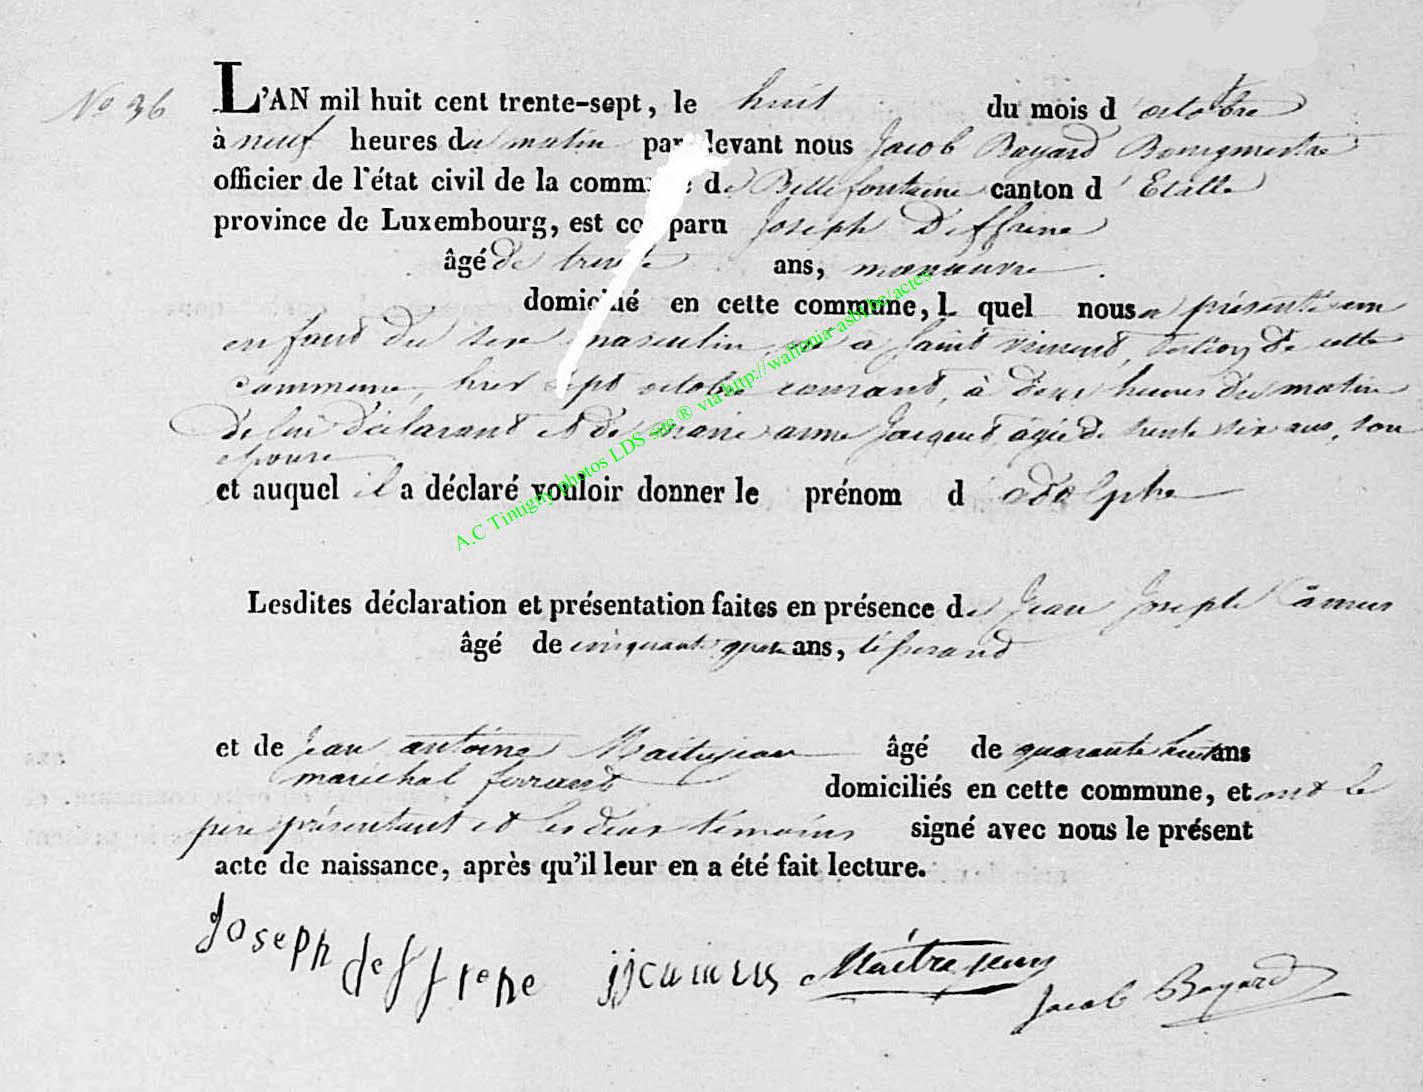 No 36
L'AN mil huit cent trente-sept, le huit du mois d'octobre
à neuf heures du matin par devant nous Jacob Bayard Bourgmestre
officier de l'état civil de la commune de Bellefontaine canton d'Etalle
province de Luxembourg, est comparu Joseph Deffrene
âgé de trente ans, manœuvre.
domicilié en cette commune, lequel nous a présenté un
enfant du sexe masculin, né à Saint vincent, section de cette
commune, hier sept octobre courant, à deux heures du matin
de lui déclarant et de marie anne Jacquet agée de trente six ans, son
épouse
et auquel il a déclaré vouloir donner le prénom d'adolphe
Lesdites déclaration et présentation faites en présence de Jean Joseph Camus
âgé de cinquante quatre ans, tisserand
et de Jean antoine Maitrejean âgé de quarante huit ans
maréchal ferrant domiciliés en cette commune, et ont le
père présentant et les deux témoins signé avec nous le présent
acte de naissance, après qu'il leur en a été fait lecture.
Joseph deffrene jjcamus Maitrejean Jacob Bayard
A.C Tintigny photos LDS site ® via http://wallonia-asbl.be/actes